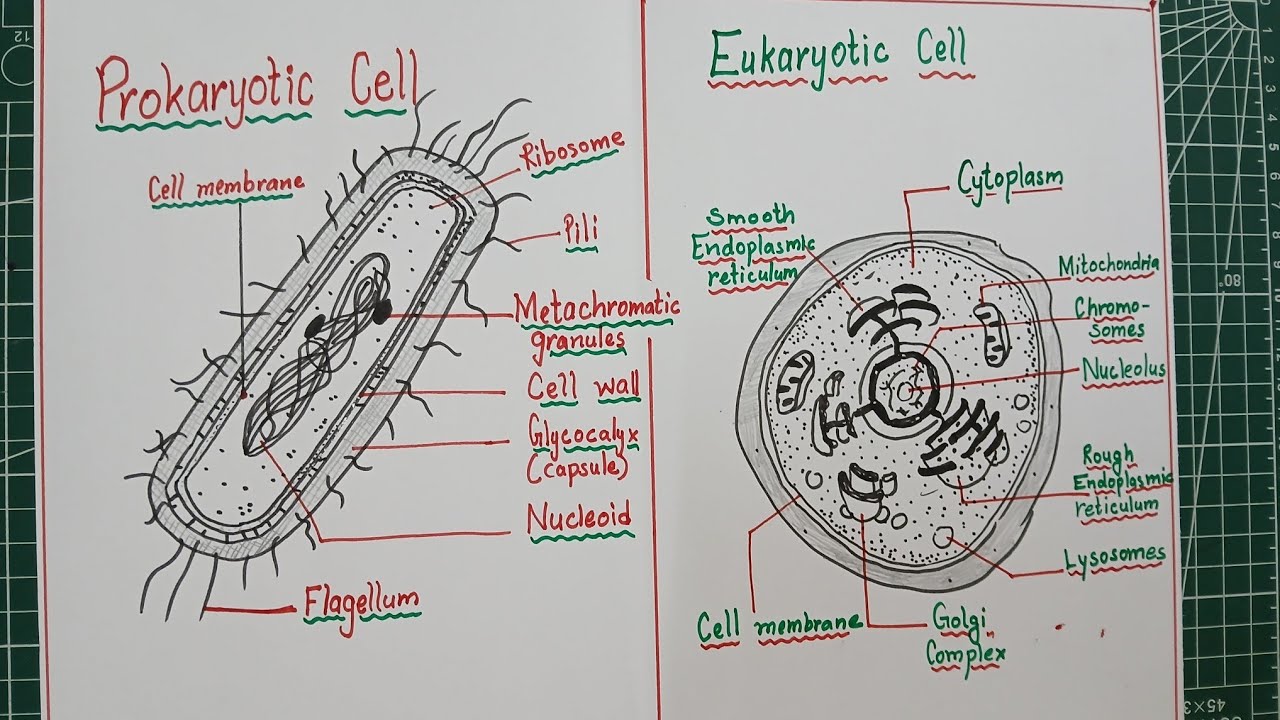 Prokaryotic Cell
Cell membrane
Ribosome
Pili
Metachromatic
granules
Cell wall
Glycocalyx
(capsule)
Nucleoid
Flagellum
Eukaryotic Cell
Cytoplasm
Smooth
Endoplasmic
reticulum
Mitochondria
Chromo-
somes
Nucleolus
Rough
Endoplasmic
reticulum
Lysosomes
Cell membrane
Golgi
Complex
12
1
2
3
4
5
80°
45×3